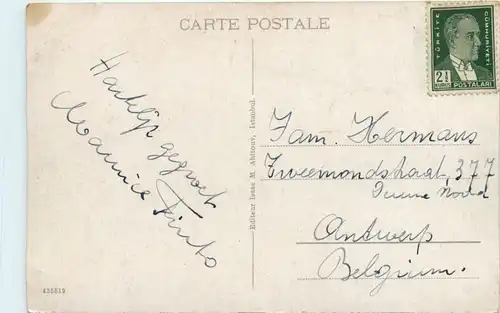 CARTE POSTALE
TÜRKİYE
CUMHURİYETİ
2½
KURUŞ
POSTALARI
Hartelijk gegroet
Maurice Pinto
Editeur Isaac M. Ahitouv, Istanbul.
Fam. Hermans
377
Deurne Noord
Antwerp
Belgium.
435619